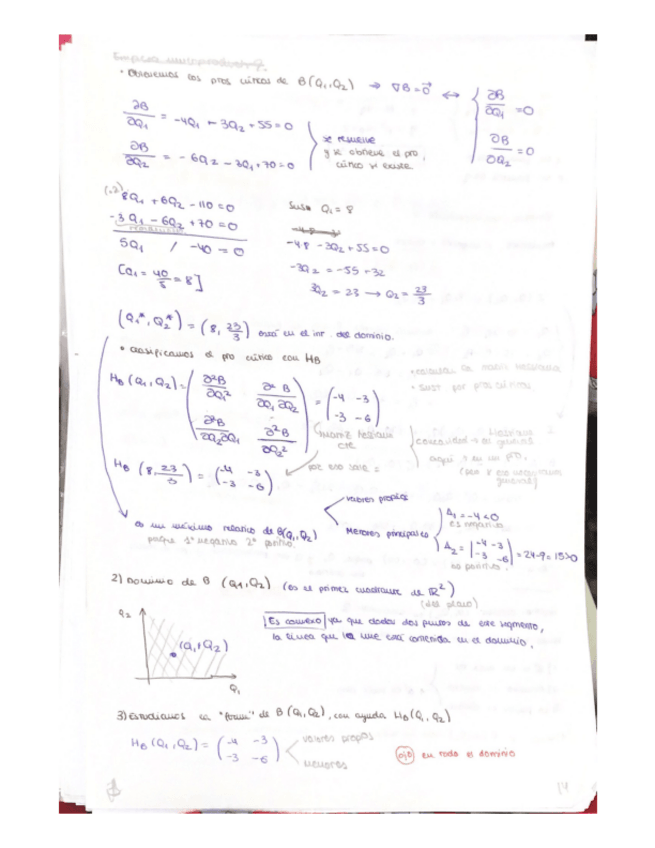 Empresa multiproductora
• Obtenemos los ptos críticos de B(Q₁,Q₂) → ∇B = 0⃗ ↔ { ∂B/∂Q₁ = 0
∂B/∂Q₂ = 0
∂B/∂Q₁ = -4Q₁ - 3Q₂ + 55 = 0
∂B/∂Q₂ = -6Q₂ - 3Q₁ + 70 = 0
se resuelve
y se obtiene el pto.
crítico si existe
8Q₁ + 6Q₂ - 110 = 0
-3Q₁ - 6Q₂ + 70 = 0
5Q₁ / -40 = 0
[Q₁ = 40/5 = 8]
Sust Q₁ = 8
-4·8 - 3Q₂ + 55 = 0
-3Q₂ = -55 + 32
3Q₂ = 23 → Q₂ = 23/3
(Q₁*, Q₂*) = (8, 23/3) está en el int. del dominio.
• Clasificamos el pto crítico con HB
HB (Q₁,Q₂) = ( ∂²B/∂Q₁² ∂²B/∂Q₁∂Q₂
∂²B/∂Q₂∂Q₁ ∂²B/∂Q₂² ) = ( -4 -3
-3 -6 )
• calcular la matriz hessiana
• sust por ptos críticos
matriz hessiana
cte
Hessiana
concavidad →
aquí → en un pto.
HB (8, 23/3) = ( -4 -3
-3 -6 )
por eso sale =
valores propios
Menores principales
Δ₁ = -4 < 0
es negativo
Δ₂ = | -4 -3
-3 -6 | = 24-9 = 15>0
es un máximo relativo de B(Q₁,Q₂)
porque 1º negativo 2º positivo.
2) Dominio de B (Q₁,Q₂) (es el primer cuadrante de ℝ²)
(del plano)
Q₂
(Q₁,Q₂)
Q₁
Es convexo ya que dados dos puntos de ese segmento,
la línea que los une está contenida en el dominio.
3) Estudiamos la "forma" de B(Q₁,Q₂), con ayuda HB(Q₁,Q₂)
HB (Q₁,Q₂) = ( -4 -3
-3 -6 )
valores propios
Menores
ojo en todo el dominio
14